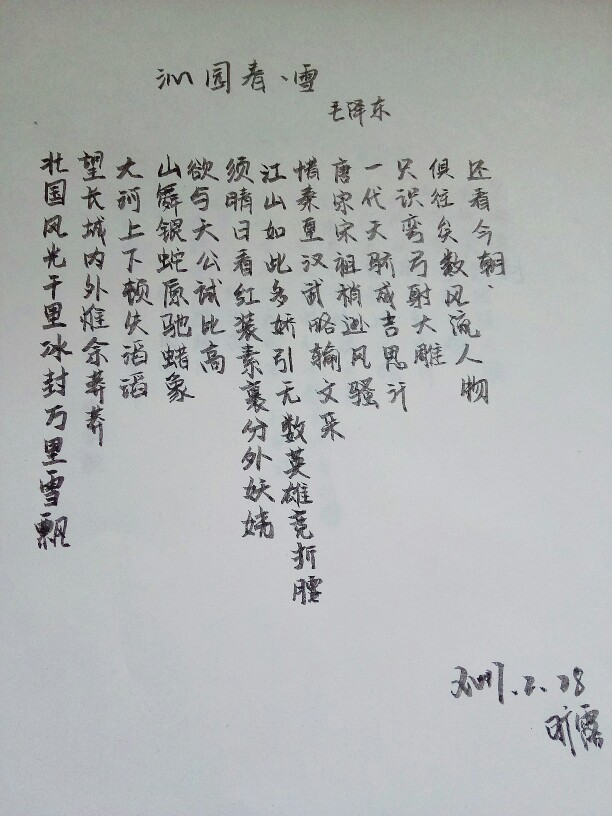 沁园春、雪
毛泽东
北国风光千里冰封万里雪飘
望长城内外惟余莽莽
大河上下顿失滔滔
山舞银蛇原驰蜡象
欲与天公试比高
须晴日看红装素裹分外妖娆
江山如此多娇引无数英雄竞折腰
惜秦皇汉武略输文采
唐宋宋祖稍逊风骚
一代天骄成吉思汗
只识弯弓射大雕
俱往矣数风流人物
还看今朝、
2017.2.28